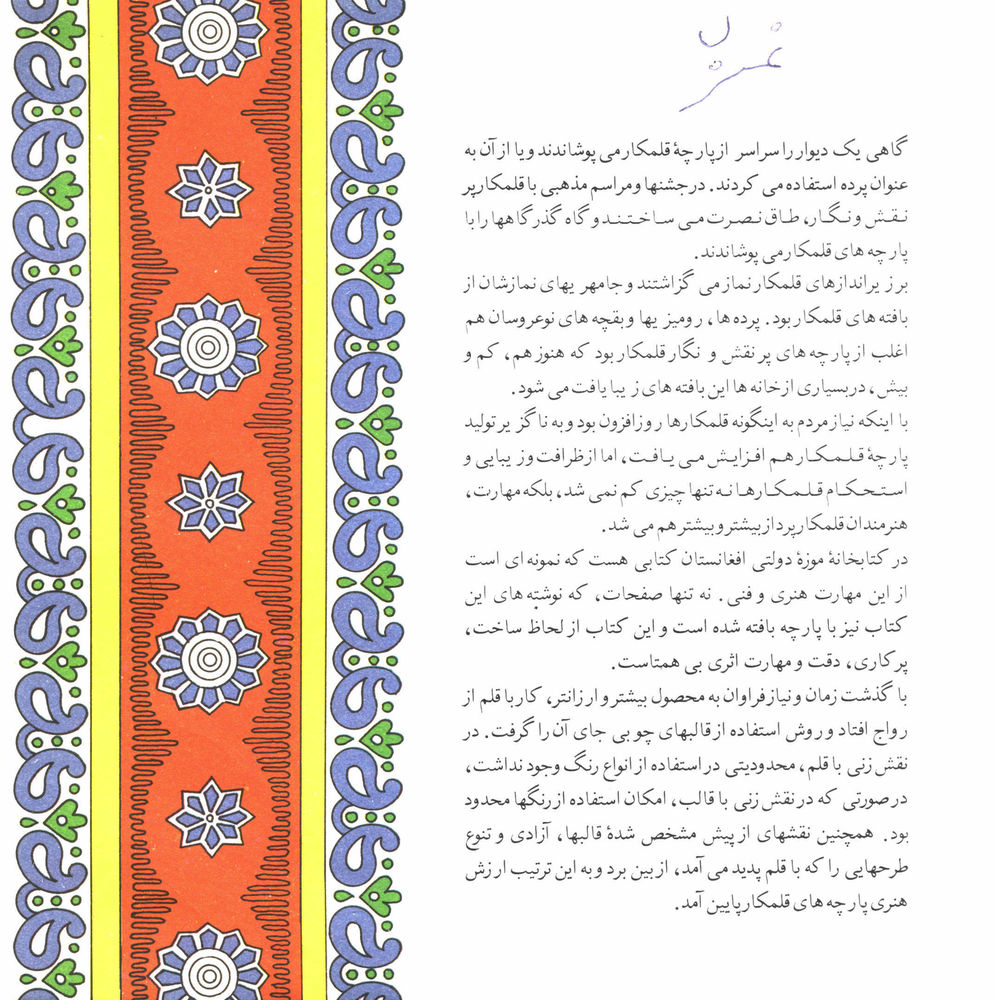 گاهی یک دیوار را سراسر از پارچهٔ قلمکار می پوشاندند و یا از آن به
عنوان پرده استفاده می کردند. در جشنها و مراسم مذهبی با قلمکار پر
نقش و نگار، طاق نصرت می ساختند و گاه گذرگاهها را با
پارچه های قلمکار می پوشاندند.
بر زیراندازهای قلمکار نماز می گزاشتند و جامهریهای نمازشان از
بافته های قلمکار بود. پرده ها، رومیزیها و بقچه های نوعروسان هم
اغلب از پارچه های پر نقش و نگار قلمکار بود که هنوز هم، کم و
بیش، در بسیاری از خانه ها این بافته های زیبا یافت می شود.
با اینکه نیاز مردم به اینگونه قلمکارها روزافزون بود و به ناگزیر تولید
پارچهٔ قلمکار هم افزایش می یافت، اما از ظرافت و زیبایی و
استحکام قلمکارها نه تنها چیزی کم نمی شد، بلکه مهارت،
هنرمندان قلمکار پرداز بیشتر و بیشتر هم می شد.
در کتابخانهٔ موزهٔ دولتی افغانستان کتابی هست که نمونه ای است
از این مهارت هنری و فنی. نه تنها صفحات، که نوشته های این
کتاب نیز با پارچه بافته شده است و این کتاب از لحاظ ساخت،
پرکاری، دقت و مهارت اثری بی همتاست.
با گذشت زمان و نیاز فراوان به محصول بیشتر و ارزانتر، کار با قلم از
رواج افتاد و روش استفاده از قالبهای چوبی جای آن را گرفت. در
نقش زنی با قلم، محدودیتی در استفاده از انواع رنگ وجود نداشت،
در صورتی که در نقش زنی با قالب، امکان استفاده از رنگها محدود
بود. همچنین نقشهای از پیش مشخص شدهٔ قالبها، آزادی و تنوع
طرحهایی را که با قلم پدید می آمد، از بین برد و به این ترتیب ارزش
هنری پارچه های قلمکار پایین آمد.